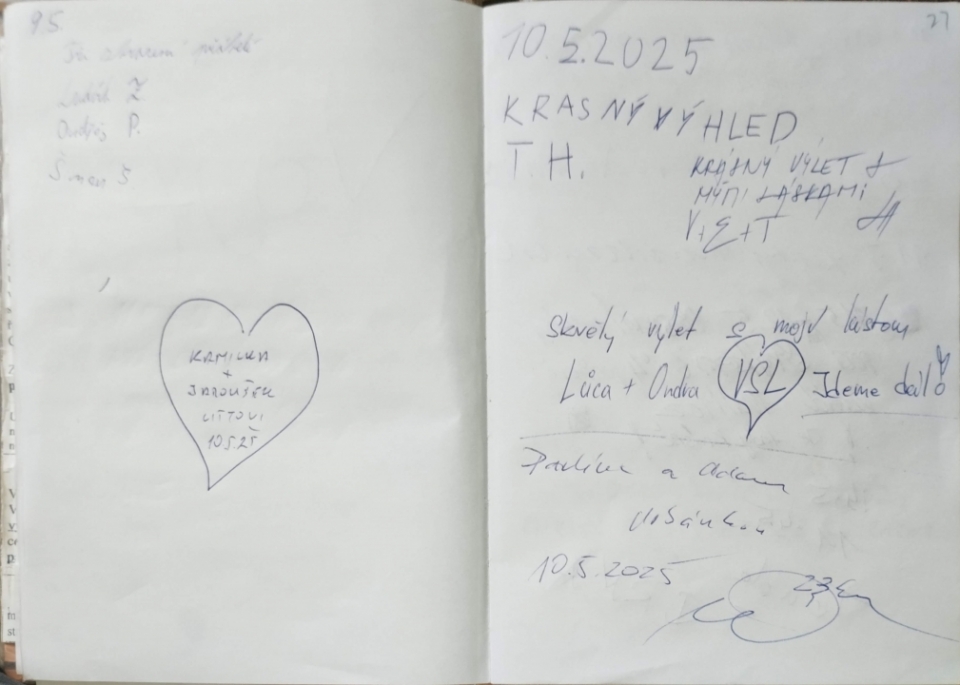 9.5.
Tři ztracení přátelé
Luděk Ž.
Ondřej P.
Šimon Š
KAMILKA
+
JAROUŠEK
LITTOVI
10.5.25
27
10.5.2025
KRASNÝ VÝHLED
T. H.
KRÁSNÝ VÝLET S
MÝMI LÁSKAMI
V+E+T
Skvělý výlet s mojí láskou
Lůca + Ondra VSL Jdeme dál!
Pavlína a Adam
10.5.2025